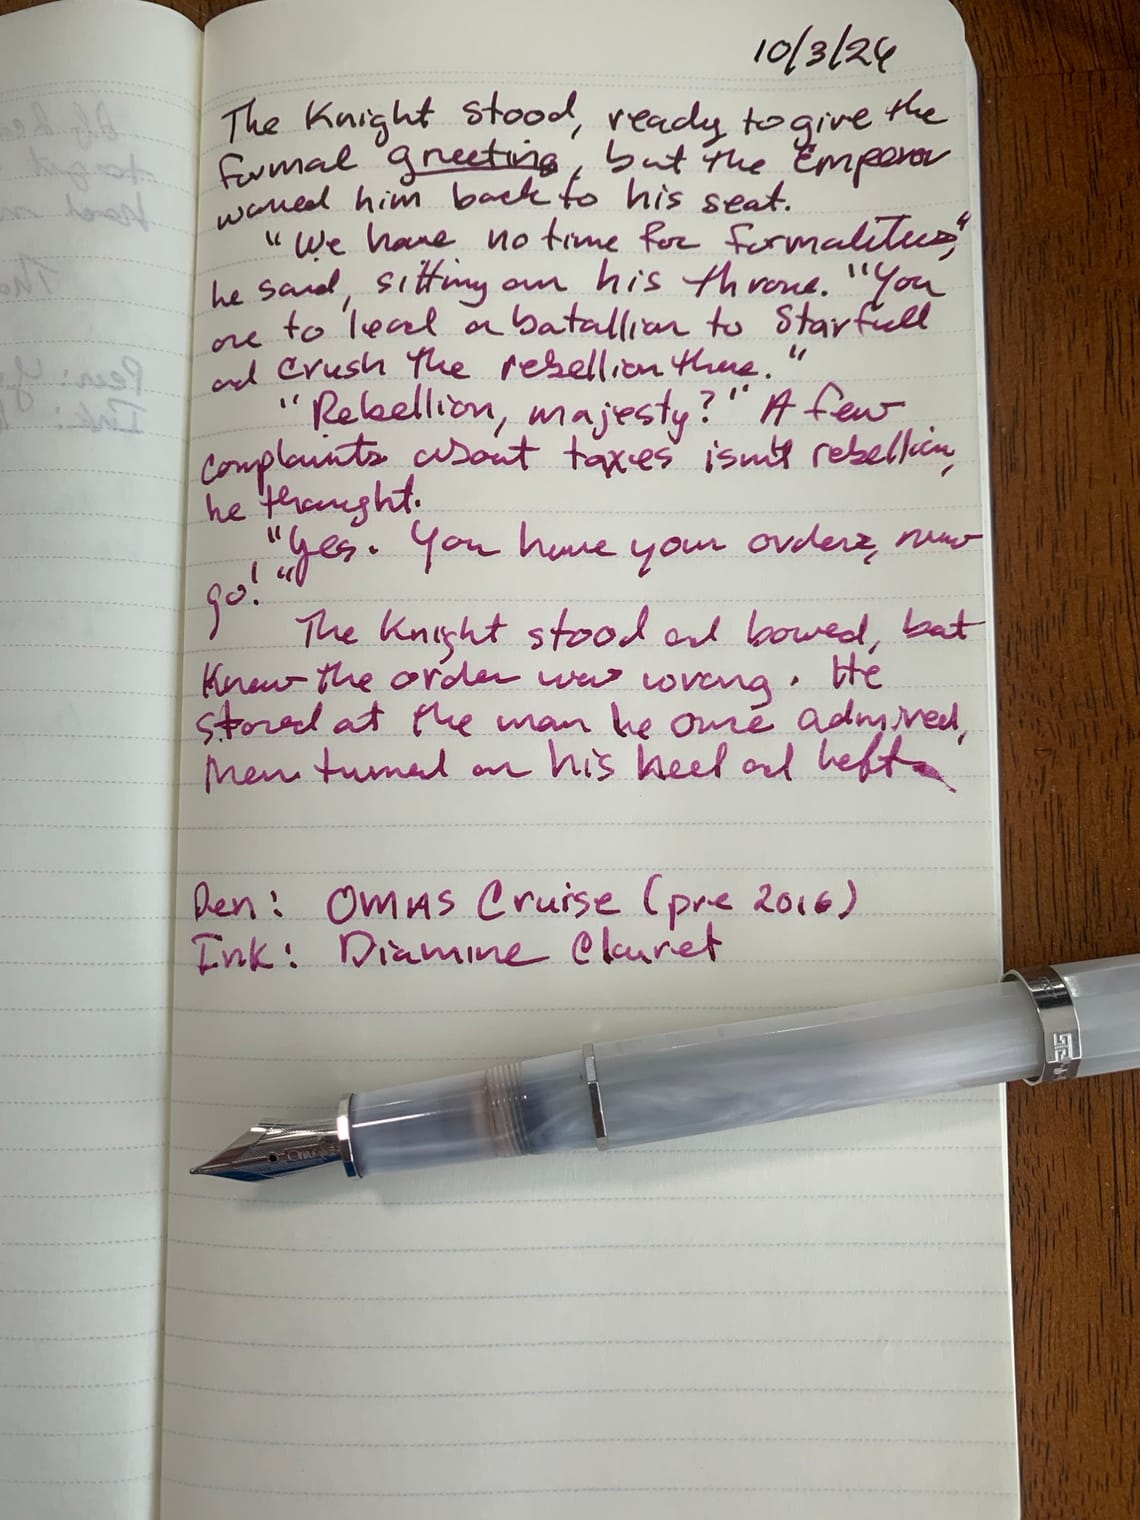 10/3/24
The Knight stood, ready to give the
formal greeting, but the Emperor
waved him back to his seat.
"We have no time for formalities,"
he said, sitting on his throne. "You
are to lead a batallion to Starfell
and crush the rebellion there."
"Rebellion, majesty?" A few
complaints about taxes isn't rebellion,
he thought.
"Yes. You have your orders, now
go!"
The Knight stood and bowed, but
knew the order was wrong. He
stared at the man he once admired,
then turned on his heel and left.
Pen: OMAS Cruise (pre 2016)
Ink: Diamine Claret